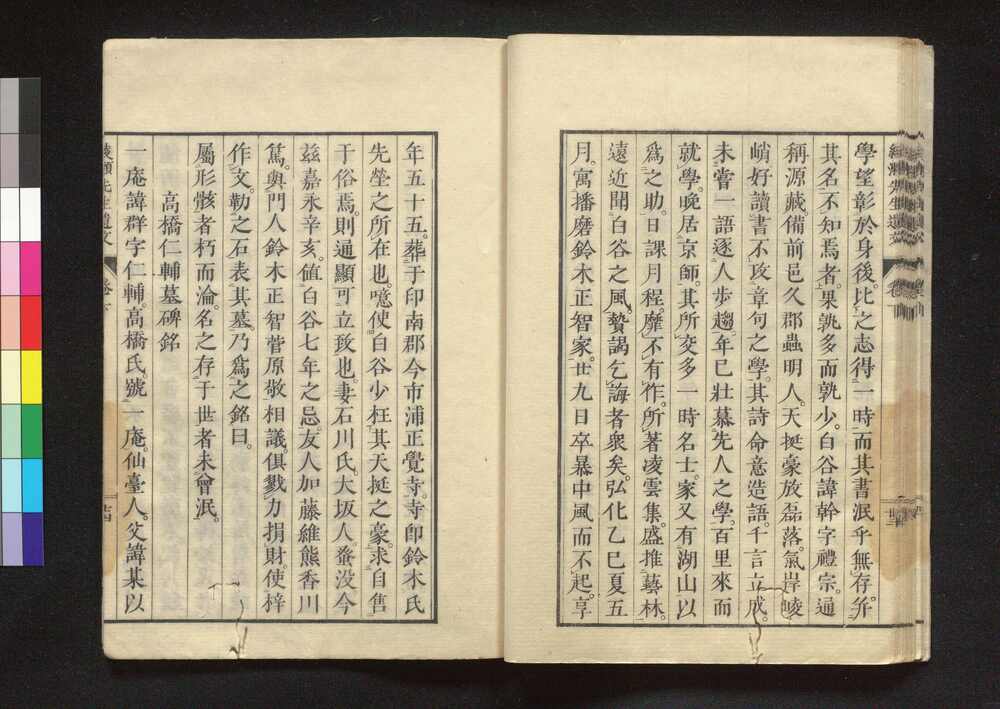 學望彰於身後。比之志得一時而其書泯乎無存。并
其名不知焉者。果孰多而孰少。白谷諱幹字禮宗。通
稱源藏。備前邑久郡蟲明人。天挺豪放磊落。氣岸崚
峭。好讀書不攻章句之學。其詩命意造語。千言立成。
未嘗一語逐人步趨。年已壯慕先人之學。百里來而
就學。晚居京師。其所交多一時名士。家又有湖山以
爲之助。日課月程。靡不有作。所著凌雲集。盛推藝林。
遠近聞白谷之風。贄謁乞誨者衆矣。弘化乙巳夏五
月。寓播磨鈴木正智家。廿九日卒暴中風而不起。享
年五十五。葬于印南郡今市浦正覺寺。寺卽鈴木氏
先塋之所在也。噫使白谷少枉其天挺之豪。求自售
于俗焉。則通顯可立致也。妻石川氏。大坂人。蚤没今
茲嘉永辛亥。値白谷七年之忌。友人加藤維熊香川
篤。與門人鈴木正智菅原敬相議。俱戮力捐財。使梓
作文。勒之石表其墓。乃爲之銘曰。
屬形骸者朽而淪。名之存于世者未曾泯。
高橋仁輔墓碑銘
一庵諱群字仁輔。高橋氏。號一庵。仙臺人。父諱某以